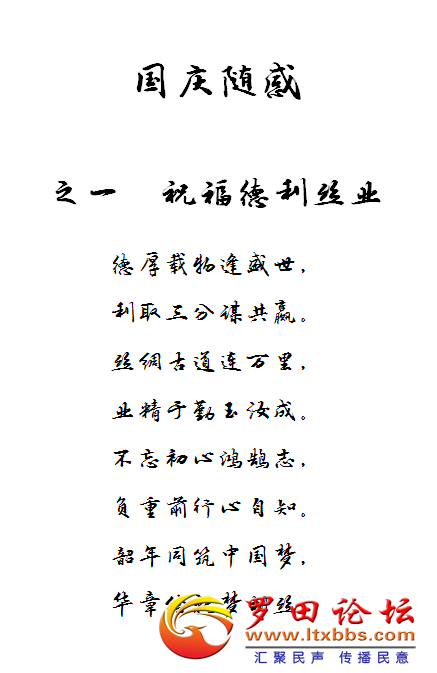 国庆随感
之一 祝福德利丝业
德厚载物逢盛世，
利取三分谋共赢。
丝绸古道连万里，
业精于勤玉汝成。
不忘初心鸿鹄志，
负重前行心自知。
韶年同筑中国梦，
华章 梦 丝
罗田论坛
www.ltxbbs.com
汇聚民声 传播民意